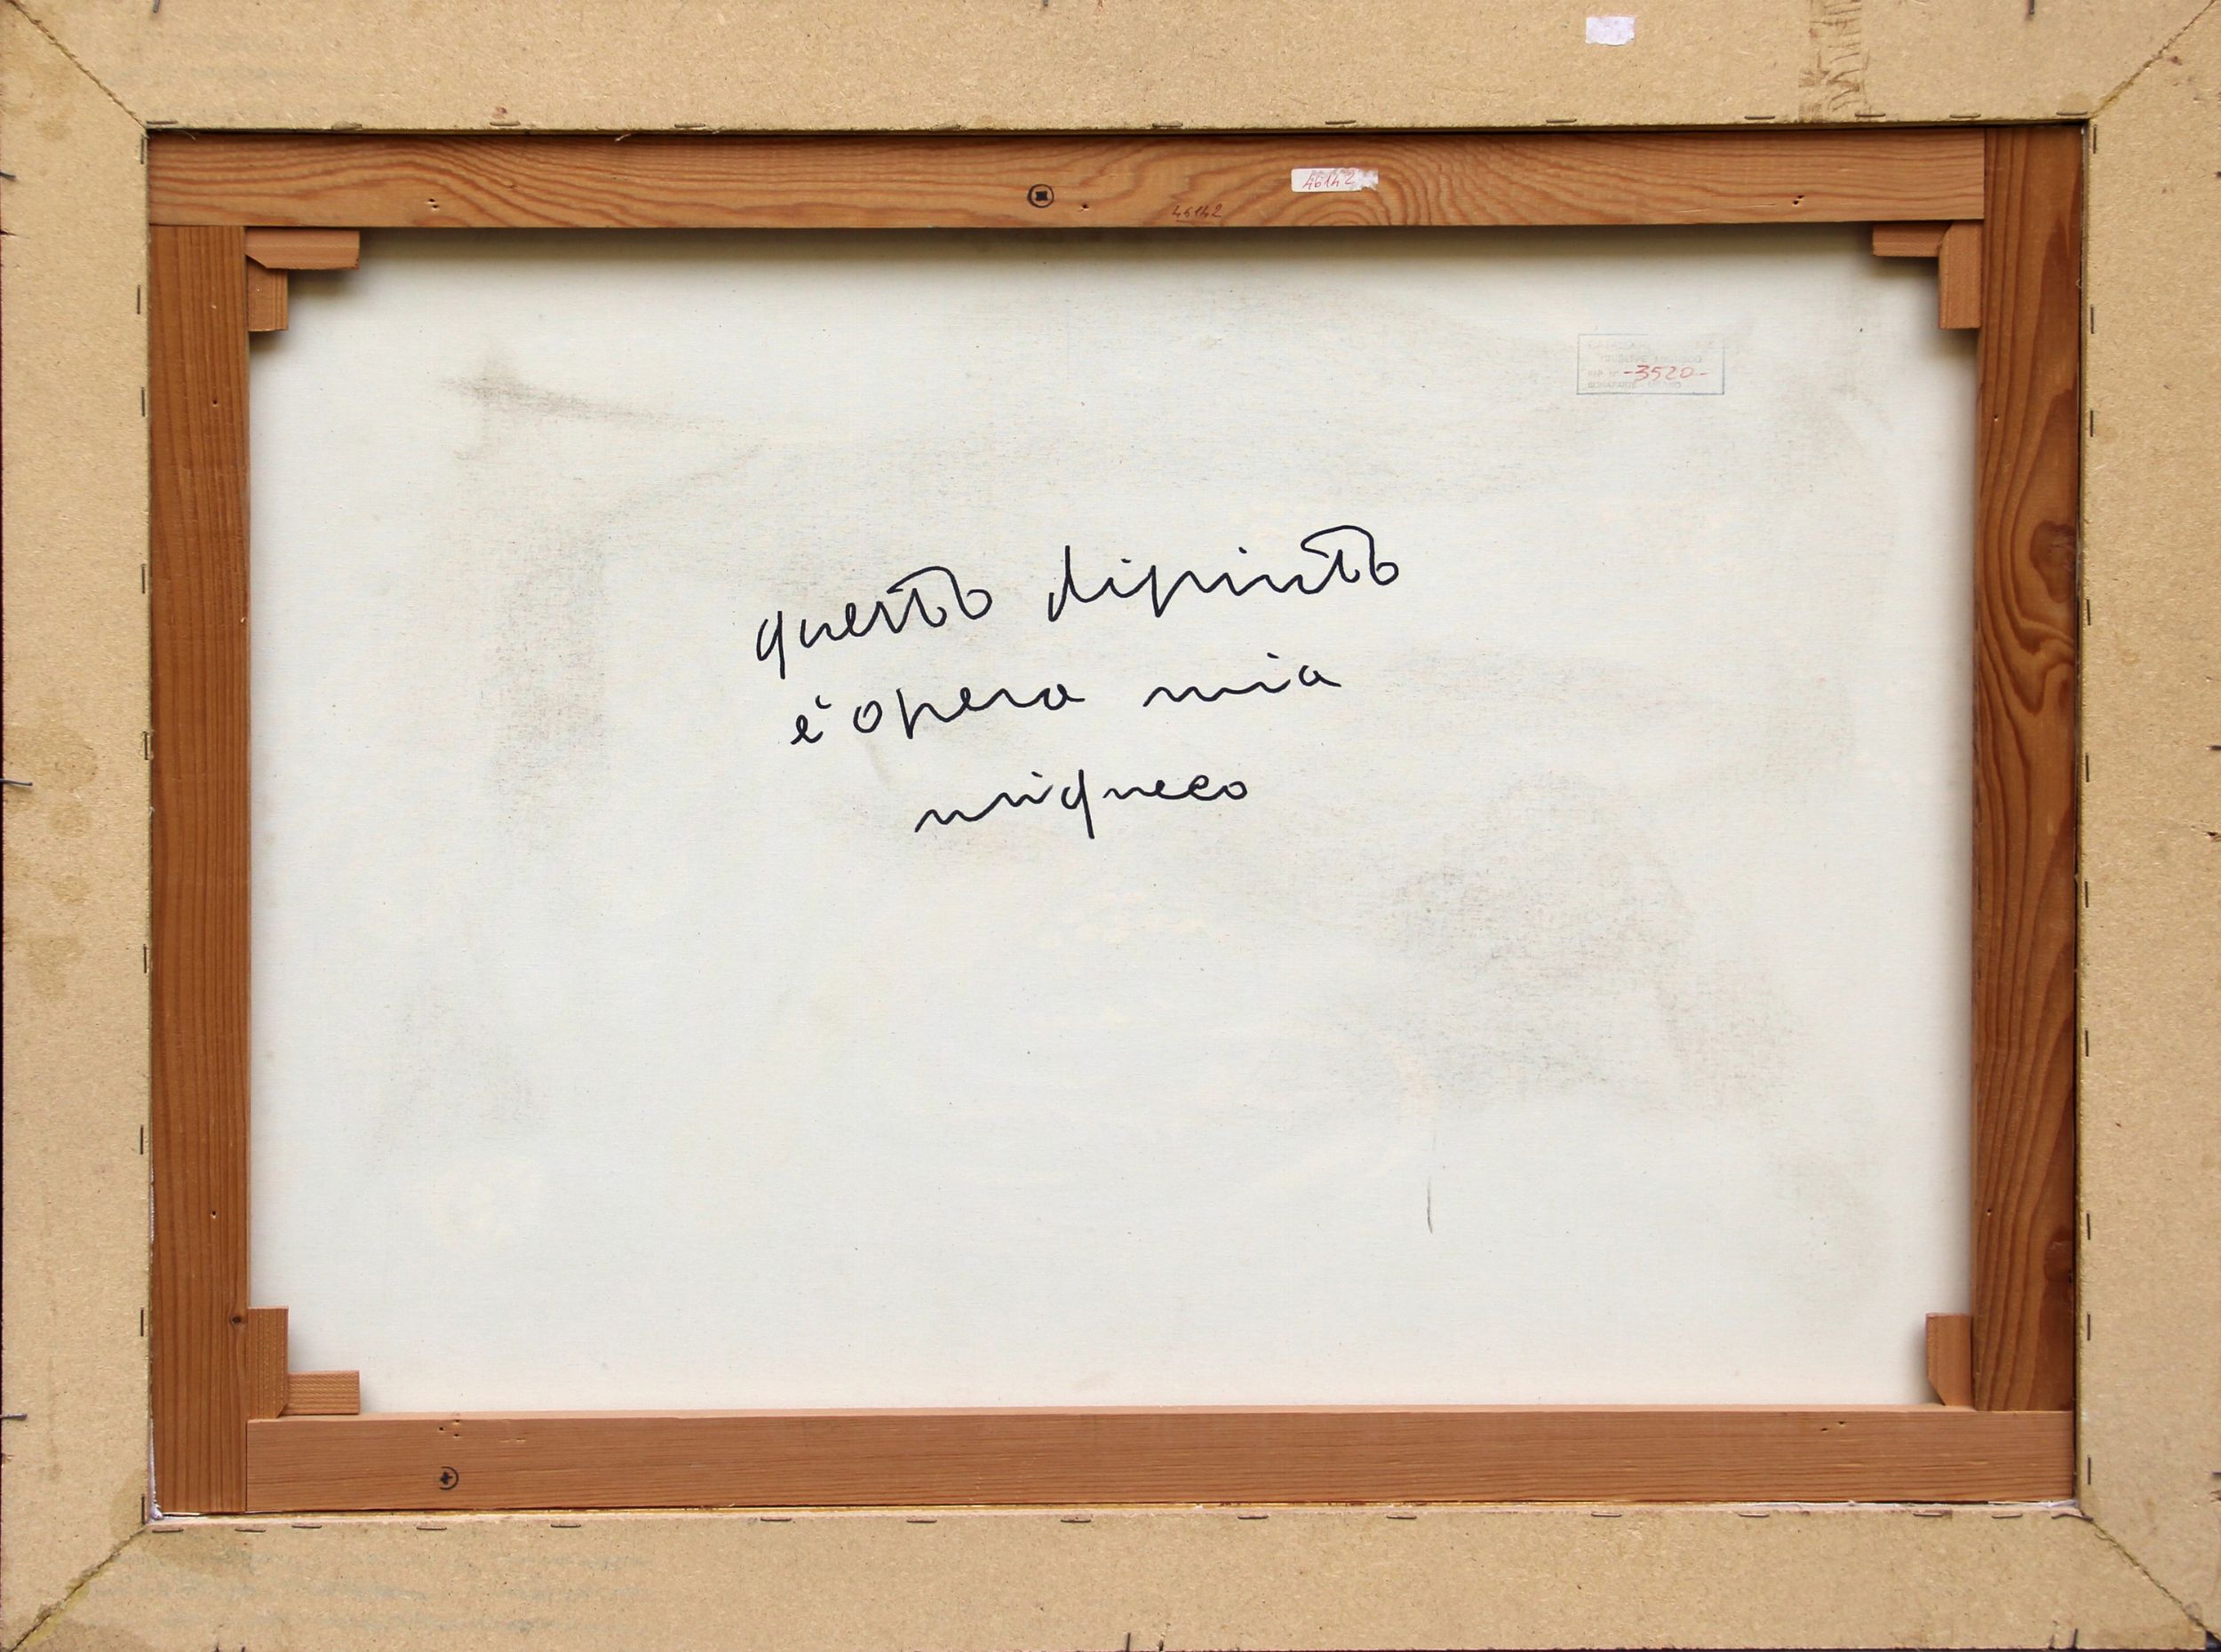 46142
46142
-3520-
questo dipinto
è opera mia
migneco